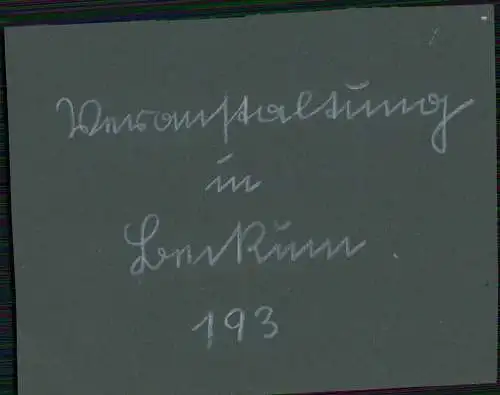 Veranstaltung
in
Beckum.
193